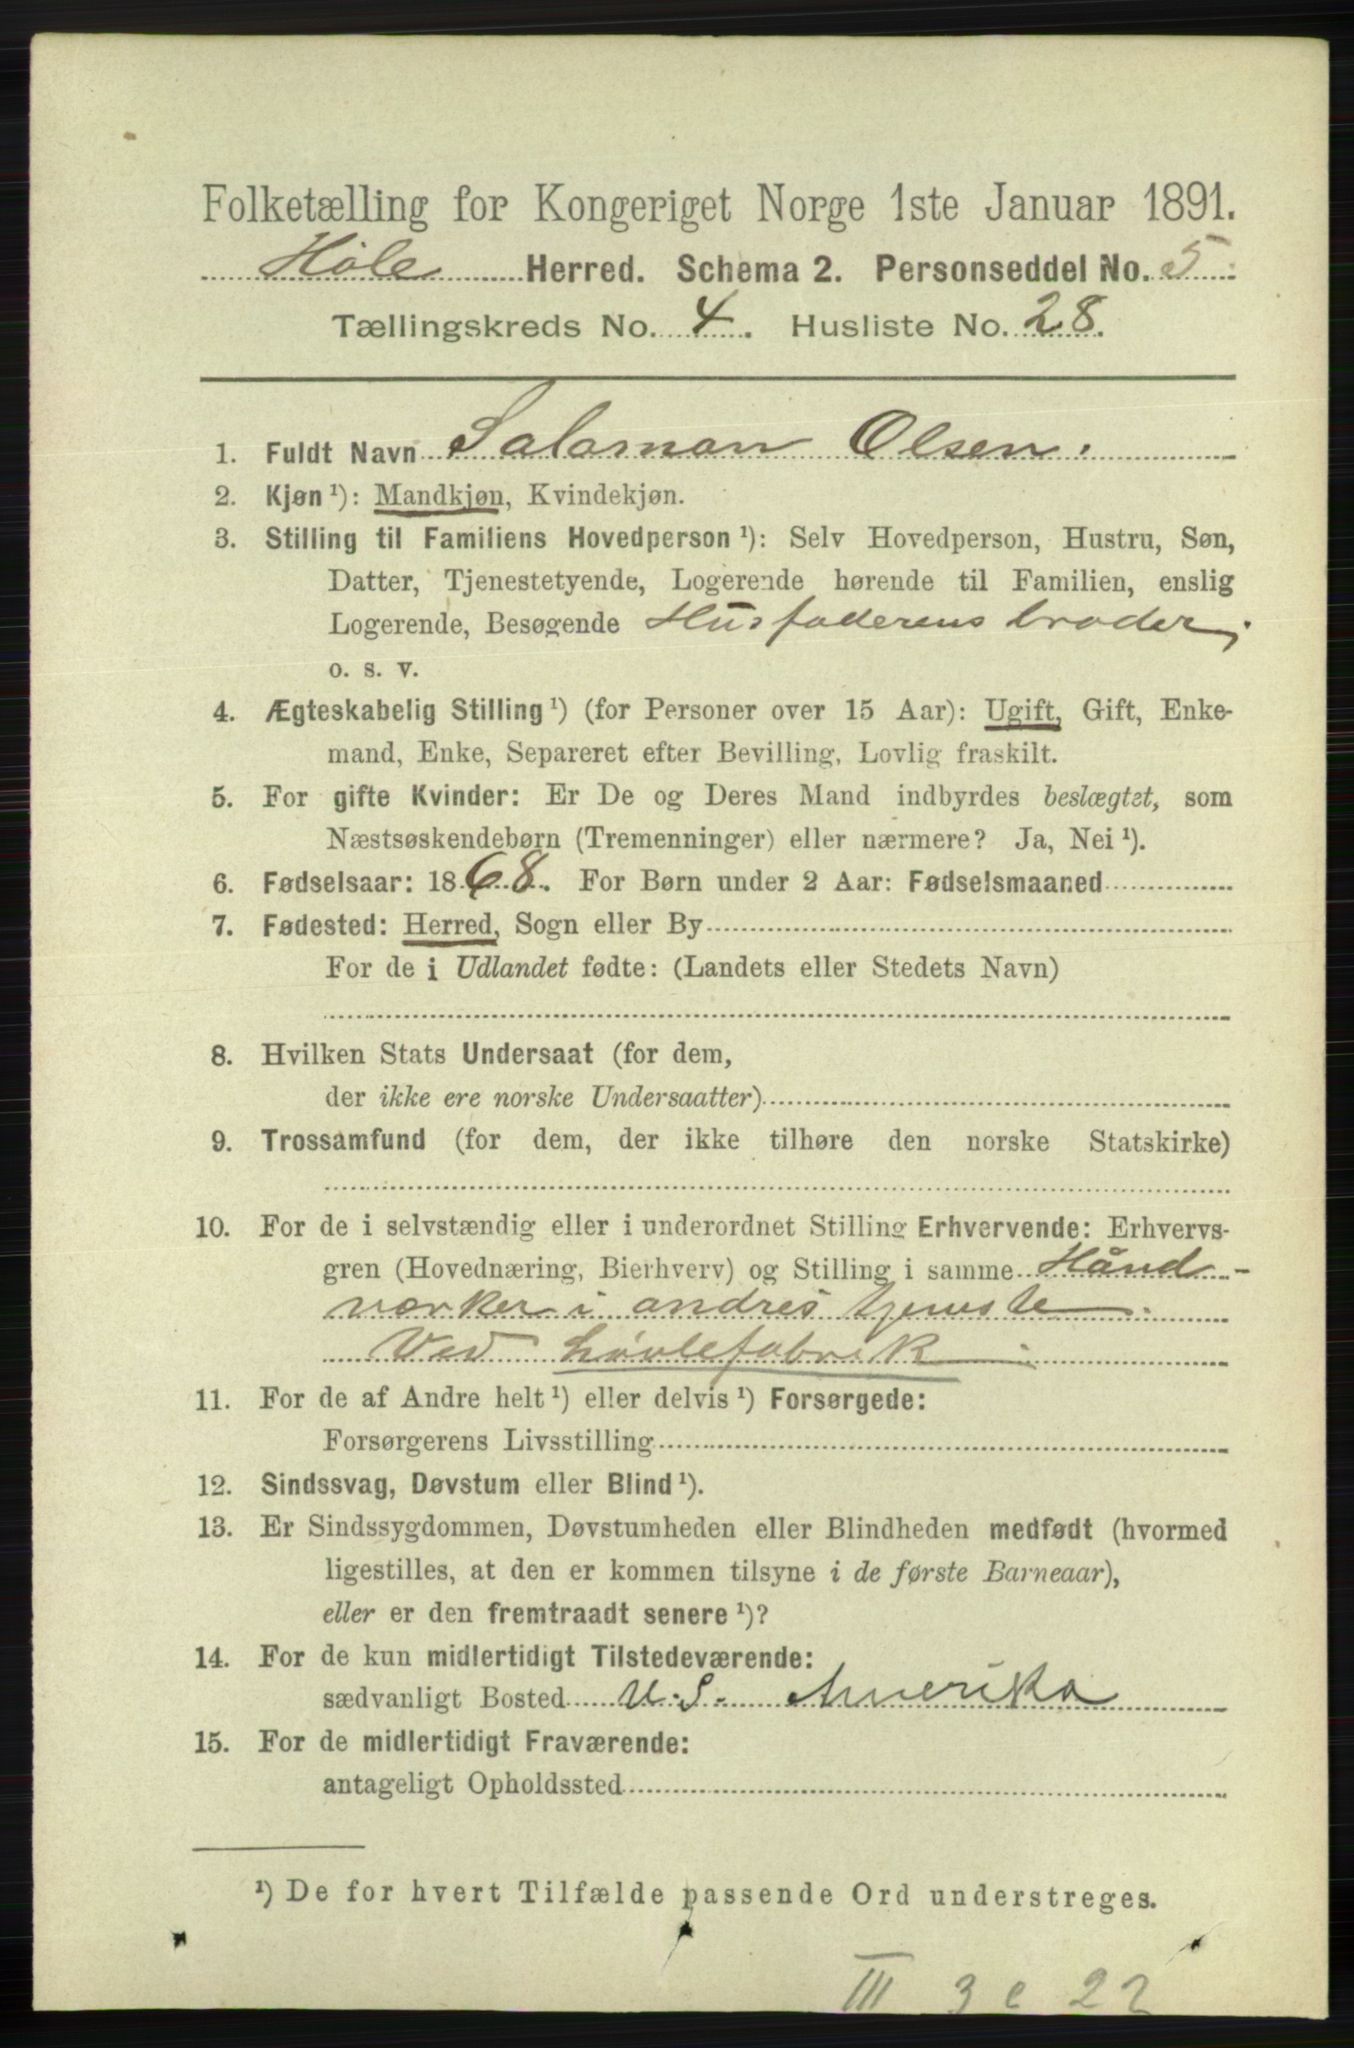 Folketælling for Kongeriget Norge 1ste Januar 1891.
Høle Herred. Schema 2. Personseddel No. 5.
Tællingskreds No. 4. Husliste No. 28.
1. Fuldt Navn Salamon Olsen.
2. Kjøn ¹): Mandkjøn, Kvindekjøn.
3. Stilling til Familiens Hovedperson ¹): Selv Hovedperson, Hustru, Søn,
Datter, Tjenestetyende, Logerende hørende til Familien, enslig
Logerende, Besøgende Husfaderens broder,
o. s. v.
4. Ægteskabelig Stilling ¹) (for Personer over 15 Aar): Ugift, Gift, Enke-
mand, Enke, Separeret efter Bevilling, Lovlig fraskilt.
5. For gifte Kvinder: Er De og Deres Mand indbyrdes beslægtet, som
Næstsøskendebørn (Tremenninger) eller nærmere? Ja, Nei ¹).
6. Fødselsaar: 1868. For Børn under 2 Aar: Fødselsmaaned
7. Fødested: Herred, Sogn eller By
For de i Udlandet fødte: (Landets eller Stedets Navn)
8. Hvilken Stats Undersaat (for dem,
der ikke ere norske Undersaatter)
9. Trossamfund (for dem, der ikke tilhøre den norske Statskirke)
10. For de i selvstændig eller i underordnet Stilling Erhvervende: Erhvervs-
gren (Hovednæring, Bierhverv) og Stilling i samme Hånd-
værker i andres tjeneste.
Ved Løvlefabrik
11. For de af Andre helt ¹) eller delvis ¹) Forsørgede:
Forsørgerens Livsstilling
12. Sindssvag, Døvstum eller Blind ¹).
13. Er Sindssygdommen, Døvstumheden eller Blindheden medfødt (hvormed
ligestilles, at den er kommen tilsyne i de første Barneaar),
eller er den fremtraadt senere ¹)?
14. For de kun midlertidigt Tilstedeværende:
sædvanligt Bosted U. S. Amerika
15. For de midlertidigt Fraværende:
antageligt Opholdssted
¹) De for hvert Tilfælde passende Ord understreges.
III 3 e 22